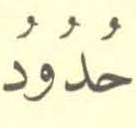 حُدُوُد